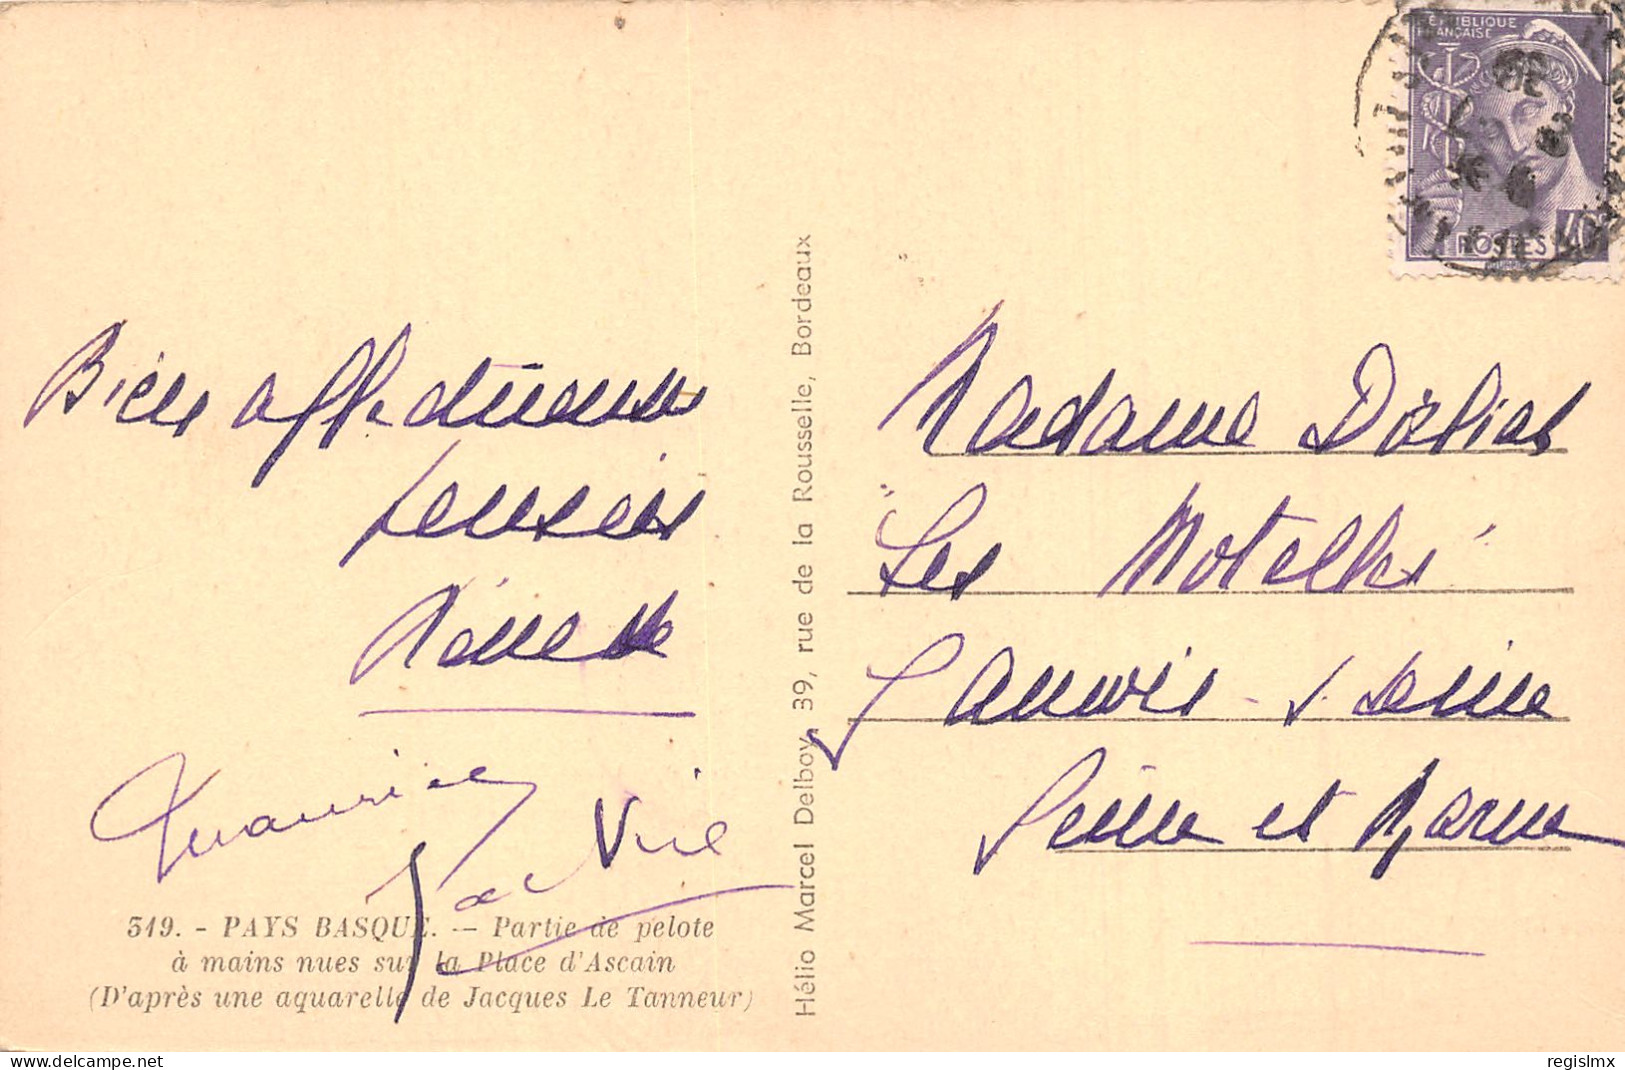 RÉPUBLIQUE
FRANÇAISE
40
POSTES
Bien affectueuses
pensées
Renée
Maurice
319. - PAYS BASQUE. — Partie de pelote
à mains nues sur la Place d'Ascain
(D'après une aquarelle de Jacques Le Tanneur)
Hélio Marcel Delboy, 39, rue de la Rousselle, Bordeaux
Madame
"Les Motelles"
Seine
Seine et Marne
delcampe.net
regislmx